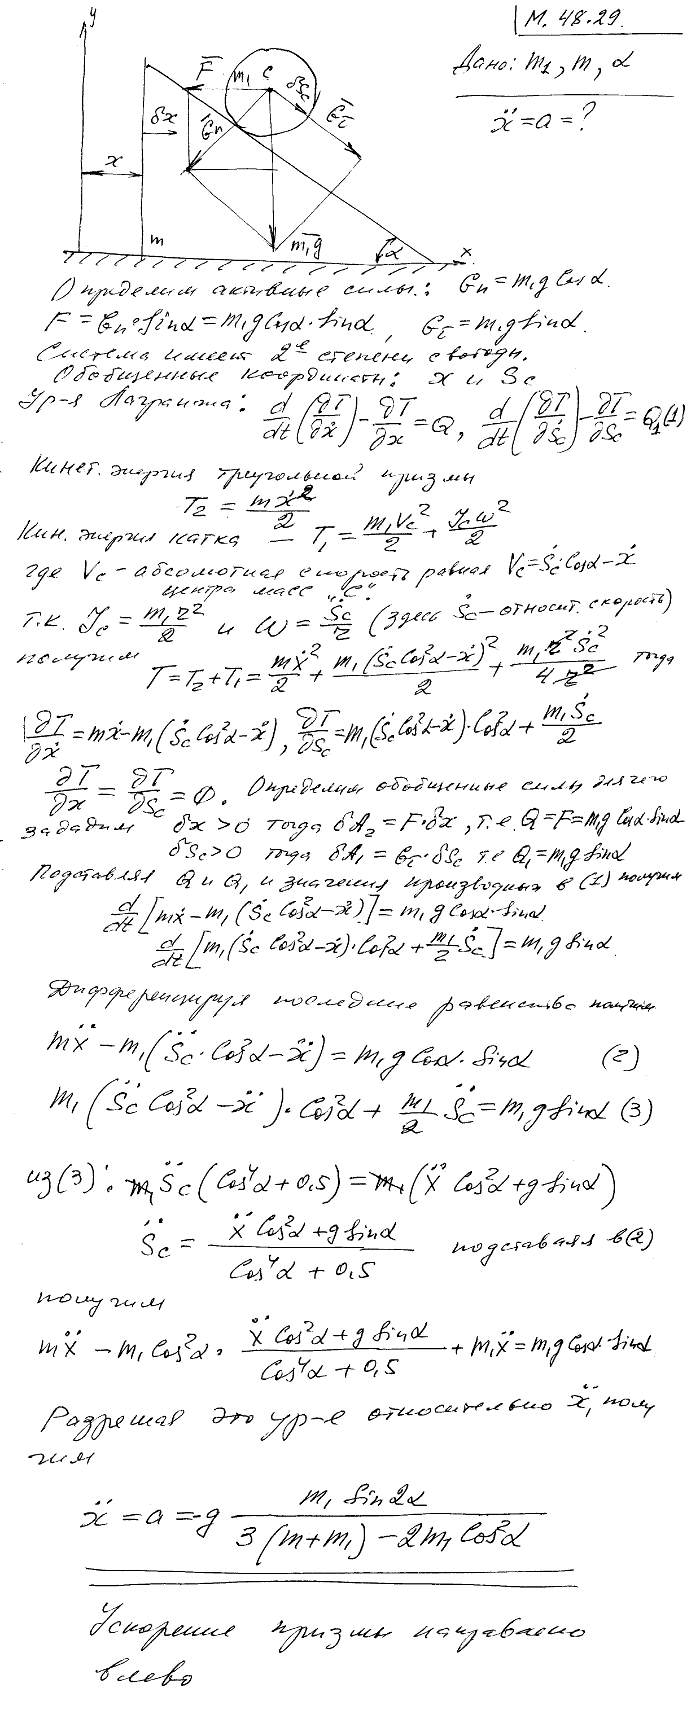 М. 48.29.
Дано: m₁, m, α
ẍ = a = ?
y
F̄ m₁ C δSc
δx Ḡn Ḡτ
x
m m₁ḡ α x
Определим активные силы: Gn = m₁g Cosα.
F = Gn·Sinα = m₁g Cosα·Sinα, Gτ = m₁g Sinα.
Система имеет 2е степени свободы.
Обобщенные координаты: x и Sc
Ур-я Лагранжа: d/dt(∂T/∂ẋ) − ∂T/∂x = Q, d/dt(∂T/∂Ṡc) − ∂T/∂Sc = Q₁ (1)
Кинет. энергия треугольной призмы
T₂ = mẋ²/2
Кин. энергия катка − T₁ = m₁Vc²/2 + Jcω²/2
где Vc − абсолютная скорость равная Vc = Ṡc Cosα − ẋ
центра масс „C".
т.к. Jc = m₁r²/2 и ω = Ṡc/r (здесь Ṡc − относит. скорость)
получим T = T₂ + T₁ = mẋ²/2 + m₁(Ṡc Cos²α − ẋ)²/2 + m₁r²Ṡc²/4r² тогда
∂T/∂ẋ = mẋ − m₁(Ṡc Cos²α − ẋ), ∂T/∂Ṡc = m₁(Ṡc Cos²α − ẋ)·Cos²α + m₁Ṡc/2
∂T/∂x = ∂T/∂Sc = 0. Определим обобщенные силы для чего
зададим δx > 0 тогда δA₂ = F·δx, т.е. Q = F = m₁g Cosα·Sinα
δSc > 0 тогда δA₁ = Gτ·δSc т.е Q₁ = m₁g Sinα
Подставляя Q и Q₁ и значения производных в (1) получим
d/dt[mẋ − m₁(Ṡc Cos²α − ẋ)] = m₁g Cosα·Sinα
d/dt[m₁(Ṡc Cos²α − ẋ)·Cos²α + m₁/2 Ṡc] = m₁g Sinα
Дифференцируя последние равенства получим
mẍ − m₁(S̈c·Cos²α − ẍ) = m₁g Cosα·Sinα (2)
m₁(S̈c Cos²α − ẍ)·Cos²α + m₁/2 S̈c = m₁g Sinα (3)
из (3): m₁S̈c(Cos⁴α + 0,5) = m₁(ẍ Cos²α + g Sinα)
S̈c = (ẍ Cos²α + g Sinα)/(Cos⁴α + 0,5) подставляя в (2)
получим
mẍ − m₁Cos²α · (ẍ Cos²α + g Sinα)/(Cos⁴α + 0,5) + m₁ẍ = m₁g Cosα·Sinα
Разрешая это ур-е относительно ẍ, полу
чим
ẍ = a = −g m₁ Sin2α/(3(m + m₁) − 2m₁Cos²α)
Ускорение призмы направлено
влево